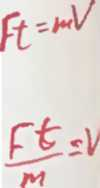 Ft=mV
Ft/m=V